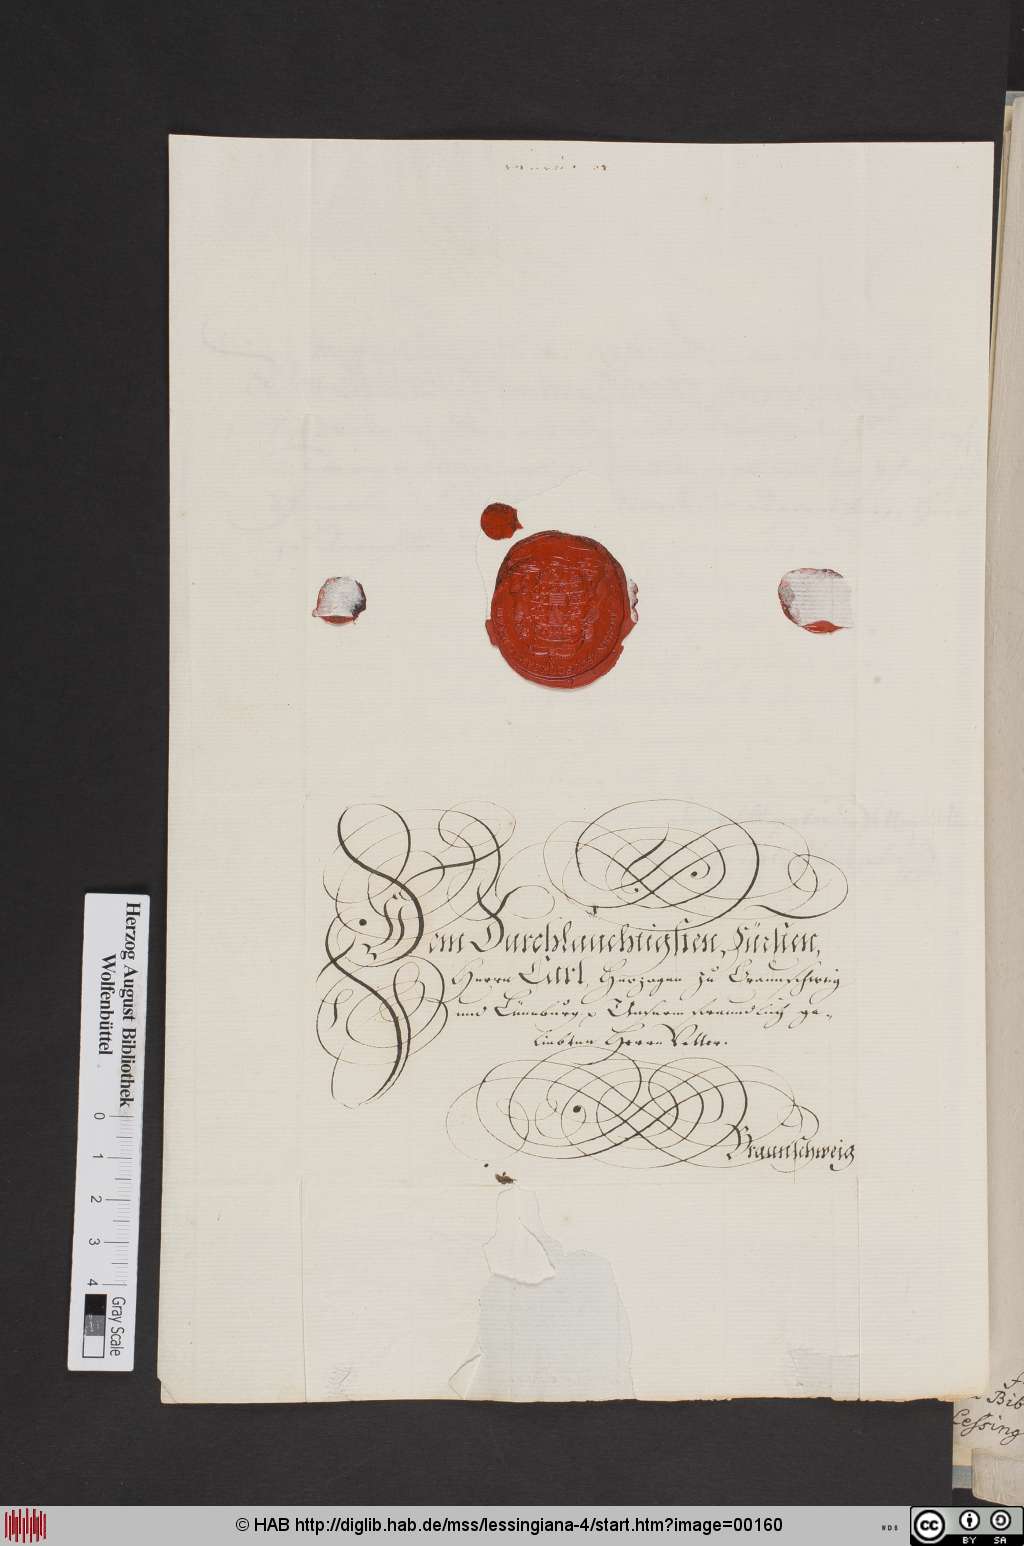 Dem Durchlauchtigsten Fürsten,
Herrn Carl, Herzogen zu Braunschweig
und Lüneburg p Unserm freundlich ge-
liebten Herrn Vetter.
Braunschweig
Herzog August Bibliothek
Wolfenbüttel
0 1 2 3 4
Gray Scale
Bib
Lessing
© HAB http://diglib.hab.de/mss/lessingiana-4/start.htm?image=00160
cc BY SA